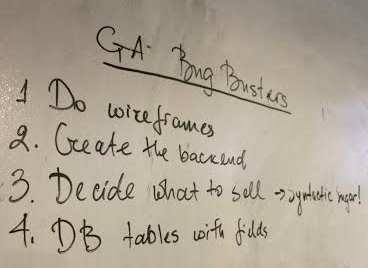 GA - Bug Busters
1 Do wireframes
2. Create the backend
3. Decide what to sell → syntactic sugar!
4. DB tables with fields